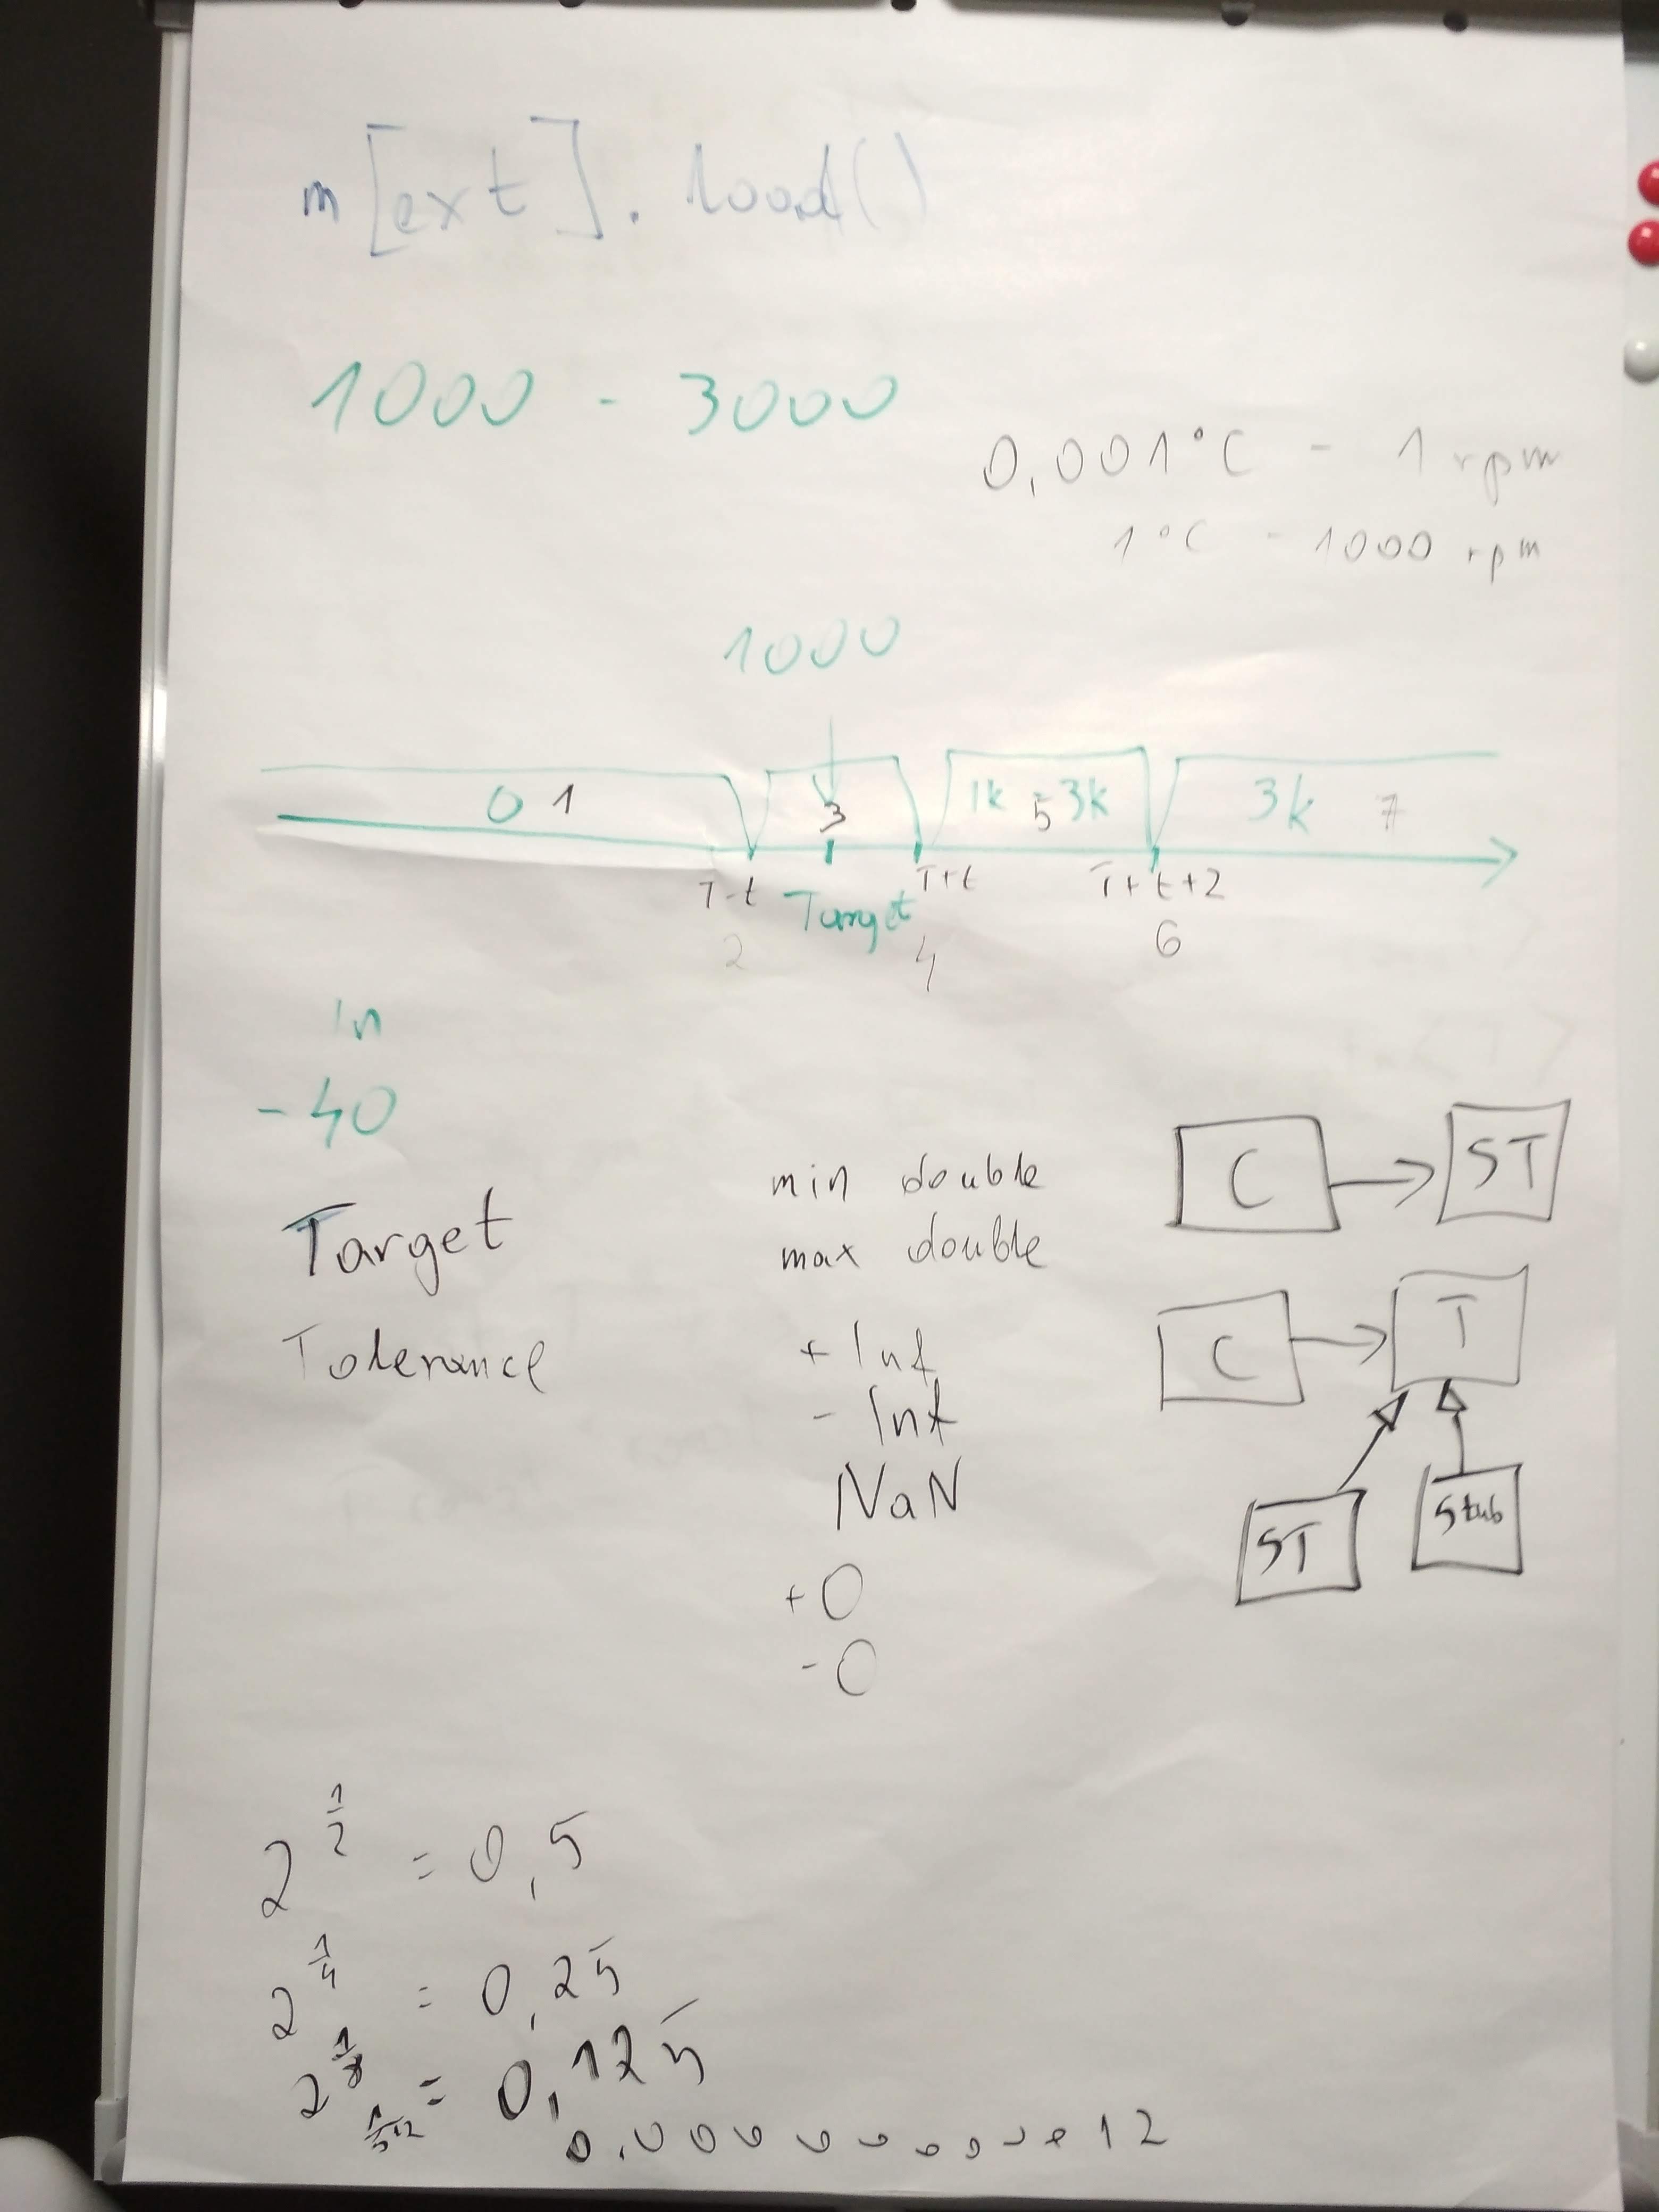 m[ext]. load()
1000 - 3000
0,001°C - 1 rpm
1°C - 1000 rpm
1000
0 1 3 1k 5 -3k 3k 7
T-t Target T+t T+t+2
2 4 6
In
-40
Target
Tolerance
min double
max double
+ Inf
- Inf
NaN
+0
-0
C ST
C T
ST Stub
2^1/2 = 0,5
2^1/4 = 0,25
2^1/8 = 0,125
1/512
0.000000000012